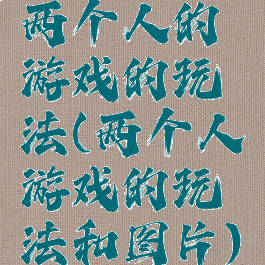 两个人的
游戏的玩
法(两个人
游戏的玩
法和图片)